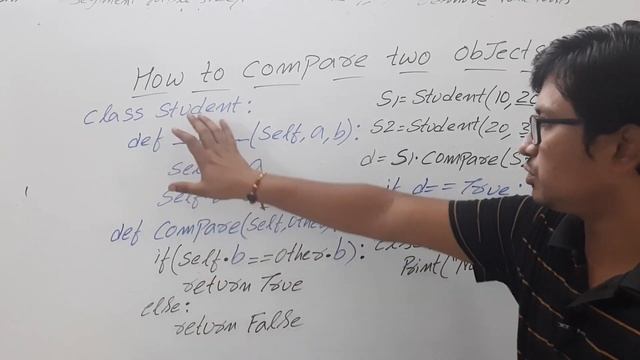 How to compare two objects
class Student:
def (self, a, b):
self
def compare(self, other
if(self.b==other.b):
return True
else:
return False
S1=Student(10, 20
S2=Student(20, 3
d=S1.compare(S
if d==True:
Print("No